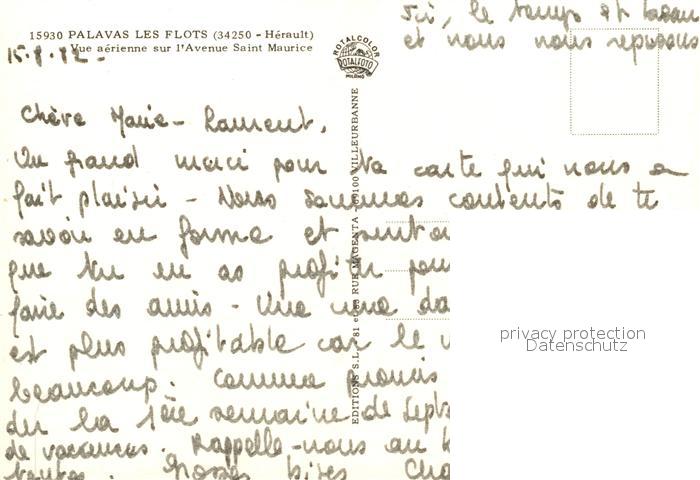 15930 PALAVAS LES FLOTS (34250 - Hérault)
Vue aérienne sur l'Avenue Saint Maurice
15.8.82 -
ROTALCOLOR
ROTALFOTO
MILANO
Ici, le temps est
et nous nous reposons
Chère Marie-Laurent,
Un grand merci pour ta carte qui nous a
fait plaisir - Nous sommes contents de te
savoir en forme et surtout
que tu en as profité pour
faire des amis - Une
est plus profitable car le
beaucoup. Comme promis
la 1ère semaine de Sept
de vacances. Rappelle-nous au
toutes. Grosses bises
EDITIONS S.L. 81 et 83 RUE MAGENTA - 69100 VILLEURBANNE
privacy protection
Datenschutz